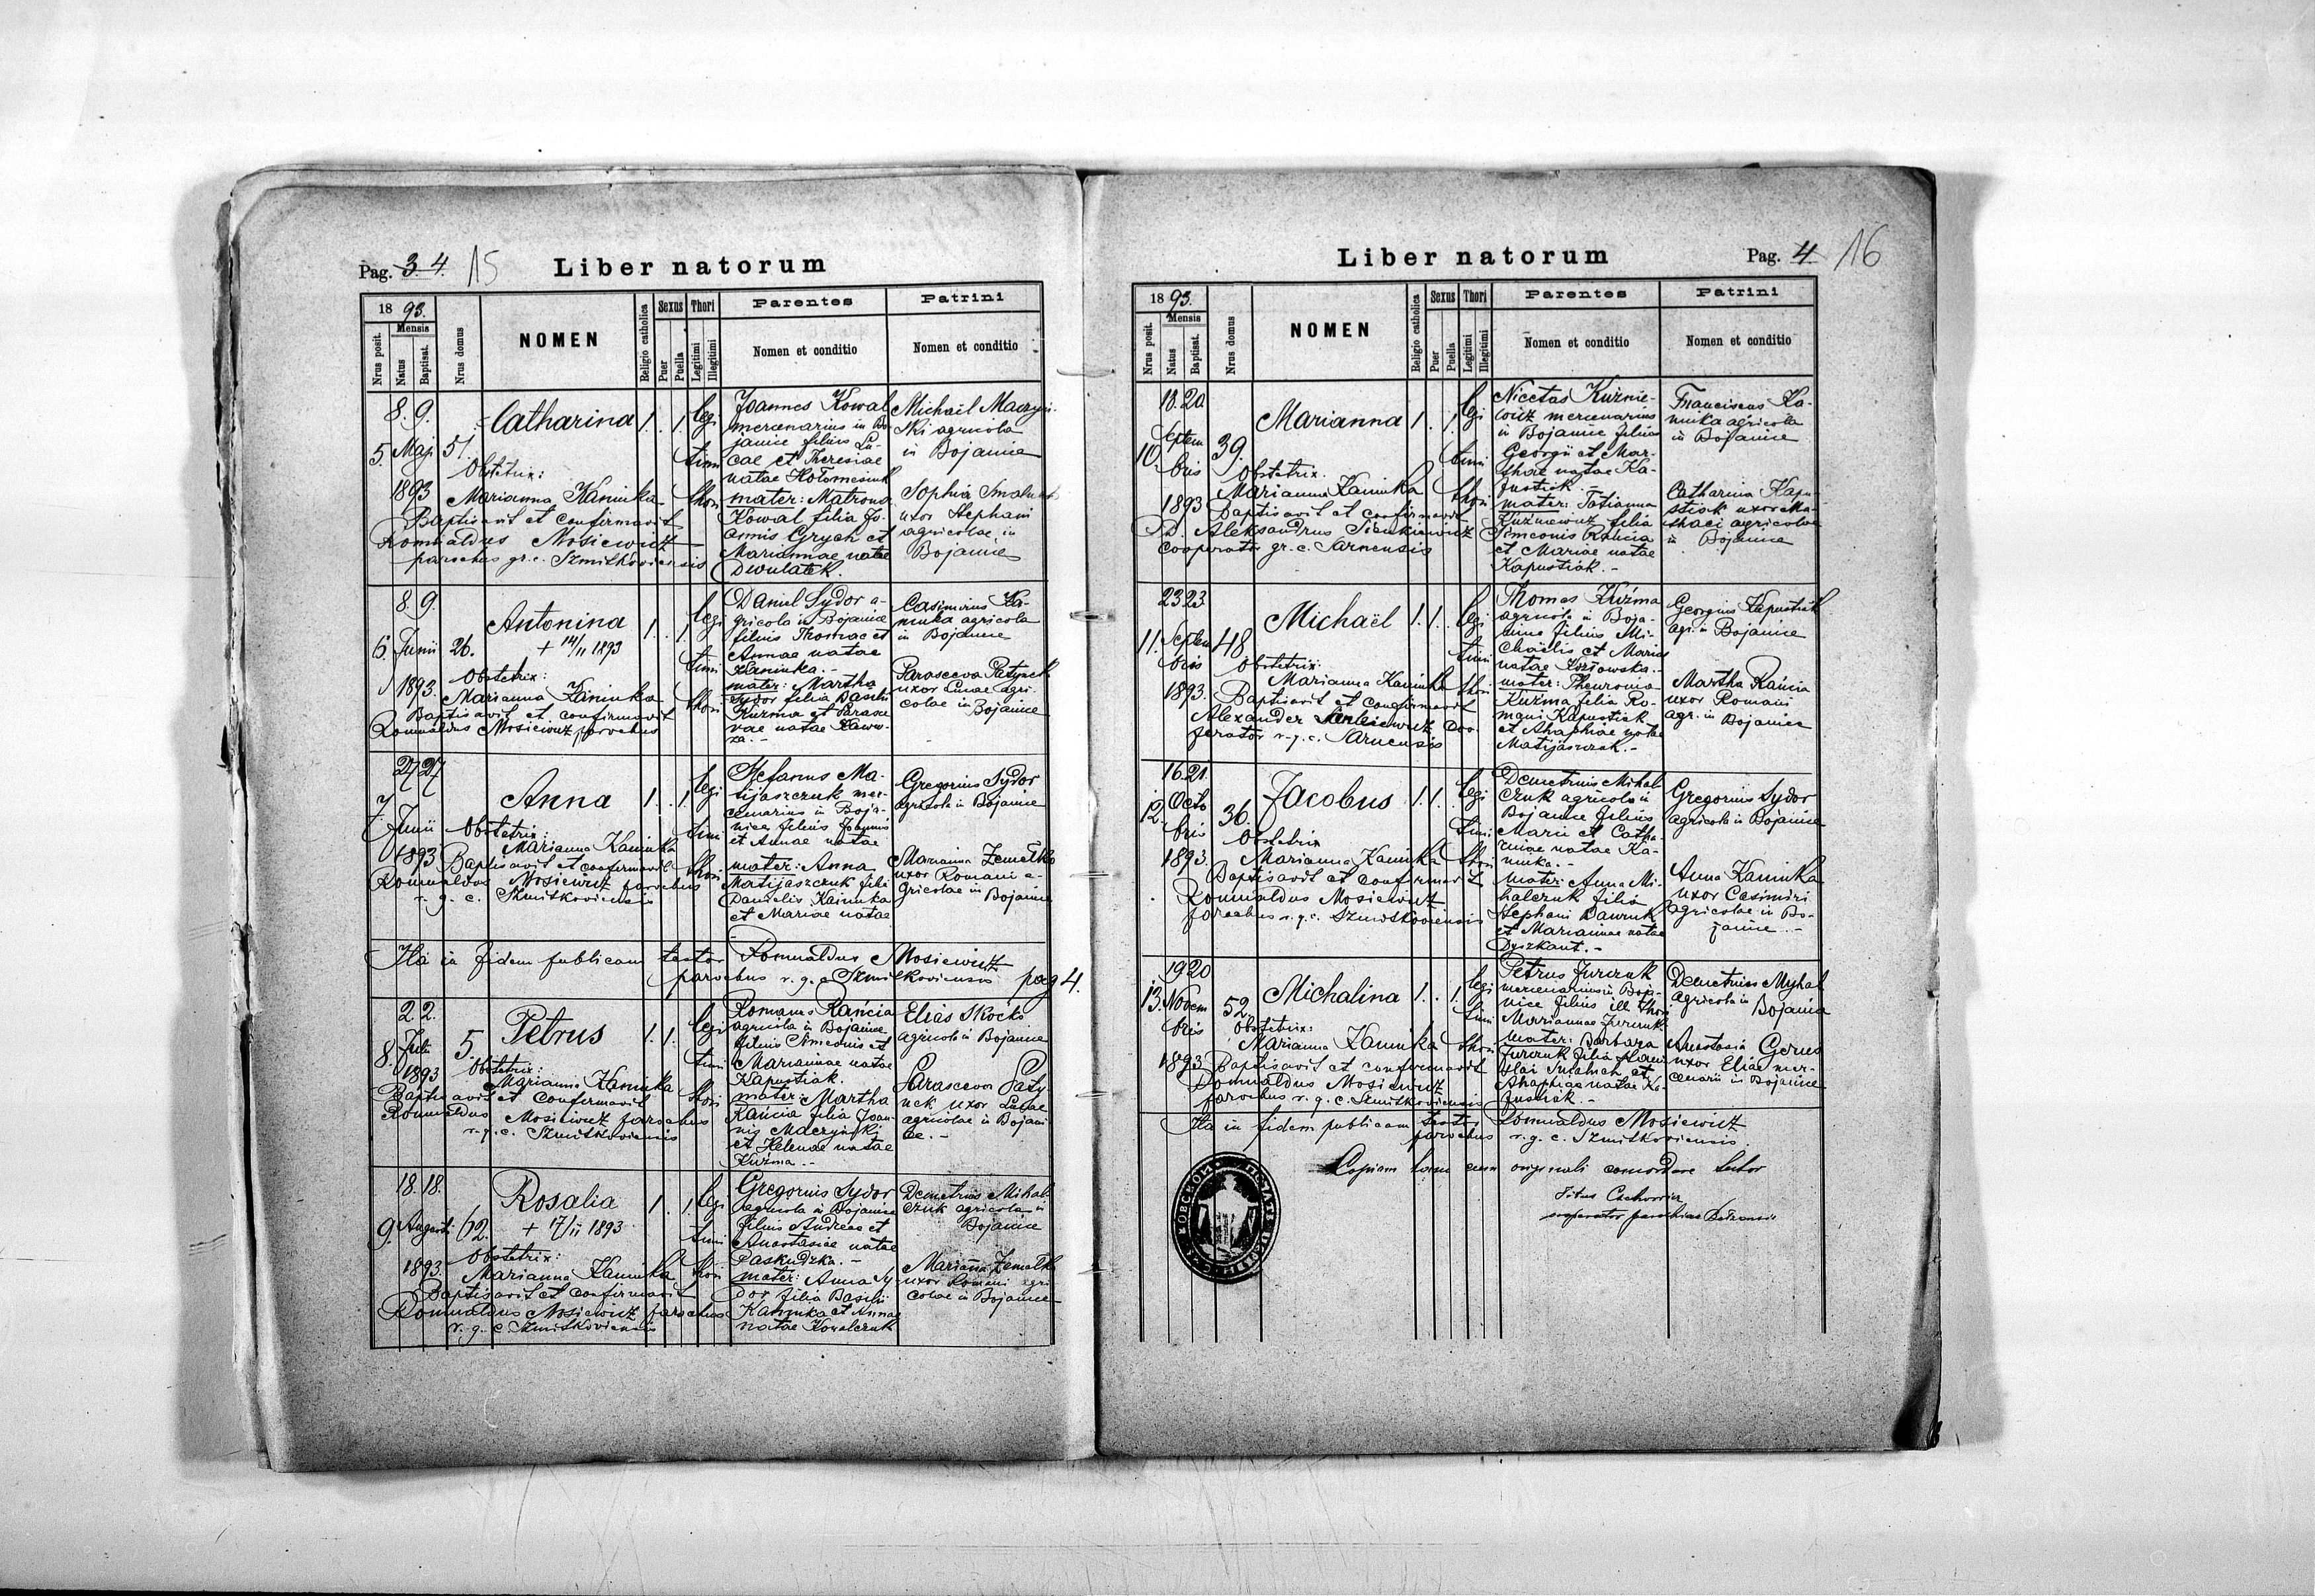 Pag. 3. 4. 15
Liber natorum
18 93.
Nrus posit.
Mensis
Natus
Baptisat.
Nrus domus
NOMEN
Religio catholica
Sexus
Puer
Puella
Thori
Legitimi
Illegitimi
Parentes
Nomen et conditio
Patrini
Nomen et conditio
5.
8. 9.
Maji
1893
51.
Catharina
1. 1.
legi
timi
thori
Obstetrix:
Marianna Kaminka
Baptisavit et confirmavit
Romualdus Mosiewicz
parochus gr. c. Szmitkoviensis
Joannes Kowal
mercenarius in Bo-
janice filius Lu-
cae et Theresiae
natae
mater: Matrona
Kowal filia Jo-
annis Grych et
Mariannae natae
Michaël Maczyń-
ski agricola
in Bojanice
Sophia
uxor Stephani
agricolae in
Bojanice
6.
8. 9.
Junii
1893.
26.
Antonina
+ 14/II 1893
1. 1.
legi
timi
thori
Obstetrix:
Marianna Kaminka
Baptisavit et confirmavit
Romualdus Mosiewicz parochus
Daniel Sydor a-
gricola in Bojanice
filius Thomae et
Annae natae
Kaminka. -
mater: Martha
Sydor filia Basilii
Kuźma et Parasce
vae natae
Casimirus Ka-
minka agricola
in Bojanice
Parasceva
uxor Lucae agri-
colae in Bojanice
7.
27 27
Junii
1893
Anna
1. 1.
legi
timi
thori
Obstetrix:
Marianna Kaminka
Baptisavit et confirmavit
Romualdus Mosiewicz parochus
r. g. c. Szmitkoviensis
Stefanus Ma-
tijaszczuk mer-
cenarius in Boja-
nice filius Joannis
et Annae natae
mater: Anna
Matijaszczuk filia
Danielis Kaminka
et Mariae natae
Gregorius Sydor
agricola in Bojanice
Marianna Zemełko
uxor Romani a-
gricolae in
Bojanice
Ita in fidem publicam testor Romualdus Mosiewicz
parochus r. g. c. Szmitkoviensis pag 4.
8.
2. 2.
Julii
1893
5
Petrus
1. 1.
legi
timi
thori
Obstetrix:
Marianna Kaminka
Baptisavit et confirmavit
Romualdus Mosiewicz parochus
r. g. c. Szmitkoviensis
Romanus Kańcia
agricola in Bojanice
filius Simeonis et
Mariannae natae
Kapustiak.
mater: Martha
Kańcia filia Joan-
nis Maczyński
et Helenae natae
Kuźma. -
Elias Skocko
agricola in Bojanice
Parasceva
uxor Lucae
agricolae in Bojani-
ce. -
9.
18. 18.
Augusti
1893.
62.
Rosalia
+ 17/II 1893
1. 1.
legi
timi
thori
Obstetrix:
Marianna Kaminka
Baptisavit et confirmavit
Romualdus Mosiewicz parochus
r. g. c. Szmitkoviensis
Gregorius Sydor
agricola in Bojanice
filius Andreae et
Anastasiae natae
Paskudzka. -
mater: Anna Sy-
dor filia Basilii
Kaminka et Annae
natae Kowalczuk
Demetrius Mihal-
czuk agricola in
Bojanice
Marianna Zemełko
uxor Romani agri
colae in Bojanice
Liber natorum
Pag. 4. 16
18 93.
Nrus posit.
Mensis
Natus
Baptisat.
Nrus domus
NOMEN
Religio catholica
Sexus
Puer
Puella
Thori
Legitimi
Illegitimi
Parentes
Nomen et conditio
Patrini
Nomen et conditio
10.
18. 20
Septem
bris
1893
39.
Marianna
1. 1.
legi
timi
thori
Obstetrix.
Marianna Kaminka
Baptisavit et confirmavit
D. Aleksandrus Sienkiewicz
cooperator gr. c. Sarnensis
Nicetas Kuźnie-
wicz mercenarius
in Bojanice filius
Georgii et Mar-
thae natae Ka-
pustiak. -
mater: Tatianna
Kuźniewicz filia
Simeonis Kańcia
et Mariae natae
Kapustiak. -
Franciscus Ka-
minka agricola
in Bojanice
Catharina Kapu-
stiak uxor Ma-
thaei agricolae
in Bojanice
11.
23 23
Septem
bris
1893.
48
Michaël
1. 1.
legi
timi
thori
Obstetrix:
Marianna Kaminka
Baptisavit et confirmavit
Alexander Sienkiewicz coo-
perator r. g. c. Sarnensis
Thomas Kuźma
agricola in Boja-
nice filius Mi-
chaëlis et Mariae
natae Kozłowska. -
mater: Pheuronia
Kuźma filia Ro-
mani Kapustiak
et Ahaphiae natae
Matijaszczuk. -
Georgius Kapustiak
agr. in Bojanice
Martha Kańcia
uxor Romani
agr. in Bojanice
12.
16. 21.
Octo
bris
1893.
36.
Jacobus
1. 1.
legi
timi
thori
Obstetrix
Marianna Kaminka
Baptisavit et confirmavit
Romualdus Mosiewicz
parochus r. g. c. Szmitkoviensis
Demetrius Mihal-
czuk agricola in
Bojanice filius
Marci et Catha-
rinae natae Ka-
minka. -
mater: Anna Mi-
halczuk filia
Stephani Dawruk
et Mariannae natae
Dyszkant. -
Gregorius Sydor
agricola in Bojanice
Anna Kaminka
uxor Casimiri
agricolae in Bo-
janice. -
13.
19 20
Novem
bris
1893
52.
Michalina
1. 1.
legi
timi
thori
Obstetrix:
Marianna Kaminka
Baptisavit et confirmavit
Romualdus Mosiewicz
parochus r. g. c. Szmitkoviensis
Petrus Jurczuk
mercenarius in Boja-
nice filius ill. thori
Mariannae Jurczuk
mater: Barbara
Jurczuk filia
et
Ahaphiae natae Ka-
pustiak. -
Demetrius Myhal
agricola in
Bojanice
Anastasia Gerus
uxor Eliae mer-
cenarii in Bojanice
Ita in fidem publicam testor Romualdus Mosiewicz
parochus r. g. c. Szmitkoviensis.
Copiam hanc cum originali concordare testor
Titus
cooperator parochiae